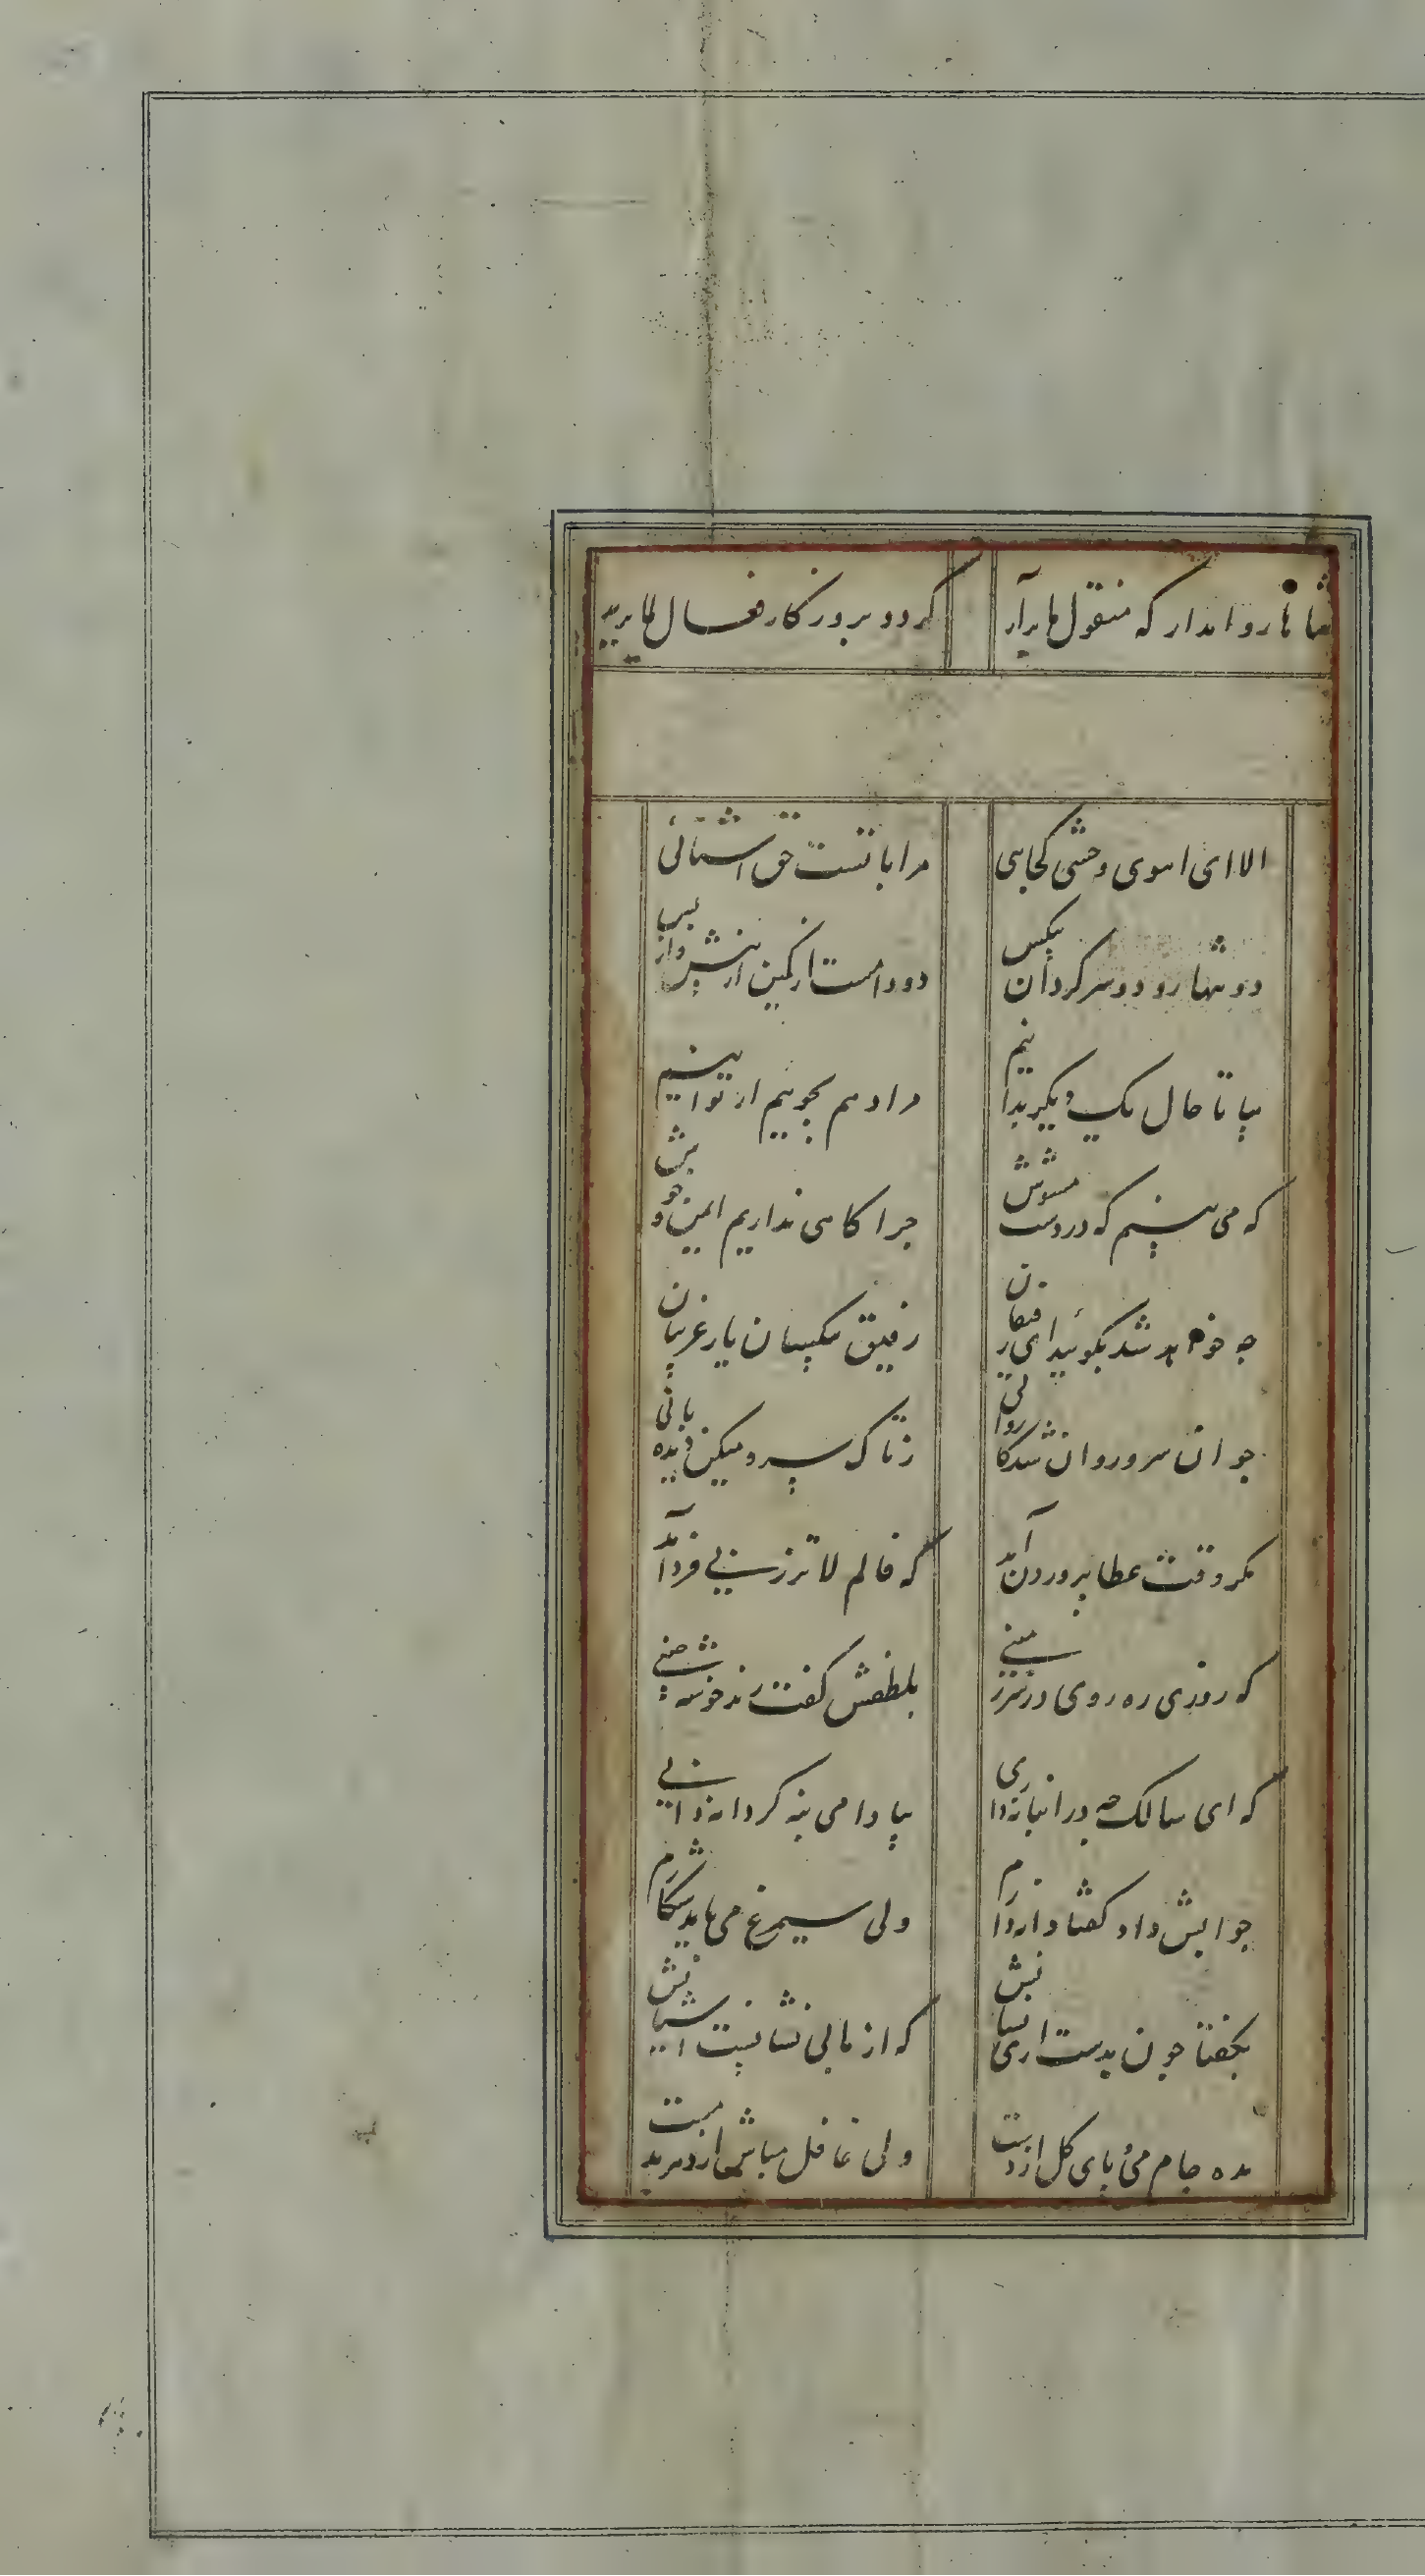 روا مدار که منقول ما برآر
کردد بروزکار فعال لما یرید
الا ای اهوی وحشی کجایی
مرا با تست حق اشنائی
دو تنها رو دو سرکردان بیکس
دو دامست از کمین از پیش و از پس
بیا تا حال یک دیکر بدانیم
مراد هم بجوییم ار توانیم
که می بینم که در دست مشوش
چراکاهی نداریم ایمن و خوش
چه خواهد شد بکوئید ای رفیقان
رفیق بیکسان یار غریبان
چو ان سرو روان شد کاروانی
ز تاک سرو میکن دیده بانی
مکر وقت عطا پروردن آمد
که فالم لا تذرنی فردا آمد
که روزی ره روی در سرزمینی
بلطفش کفت رند خوشه چینی
که ای سالک چه در انبانه داری
بیا دامی بنه کر دانه داری
جوابش داد کفتا دام دارم
ولی سیمرغ می باید شکارم
بکفتا چون بدست اری نشانش
که از مابی نشانیست اشیانش
مده جام می و پای کل از دست
ولی غافل مباش از دهر بدمست